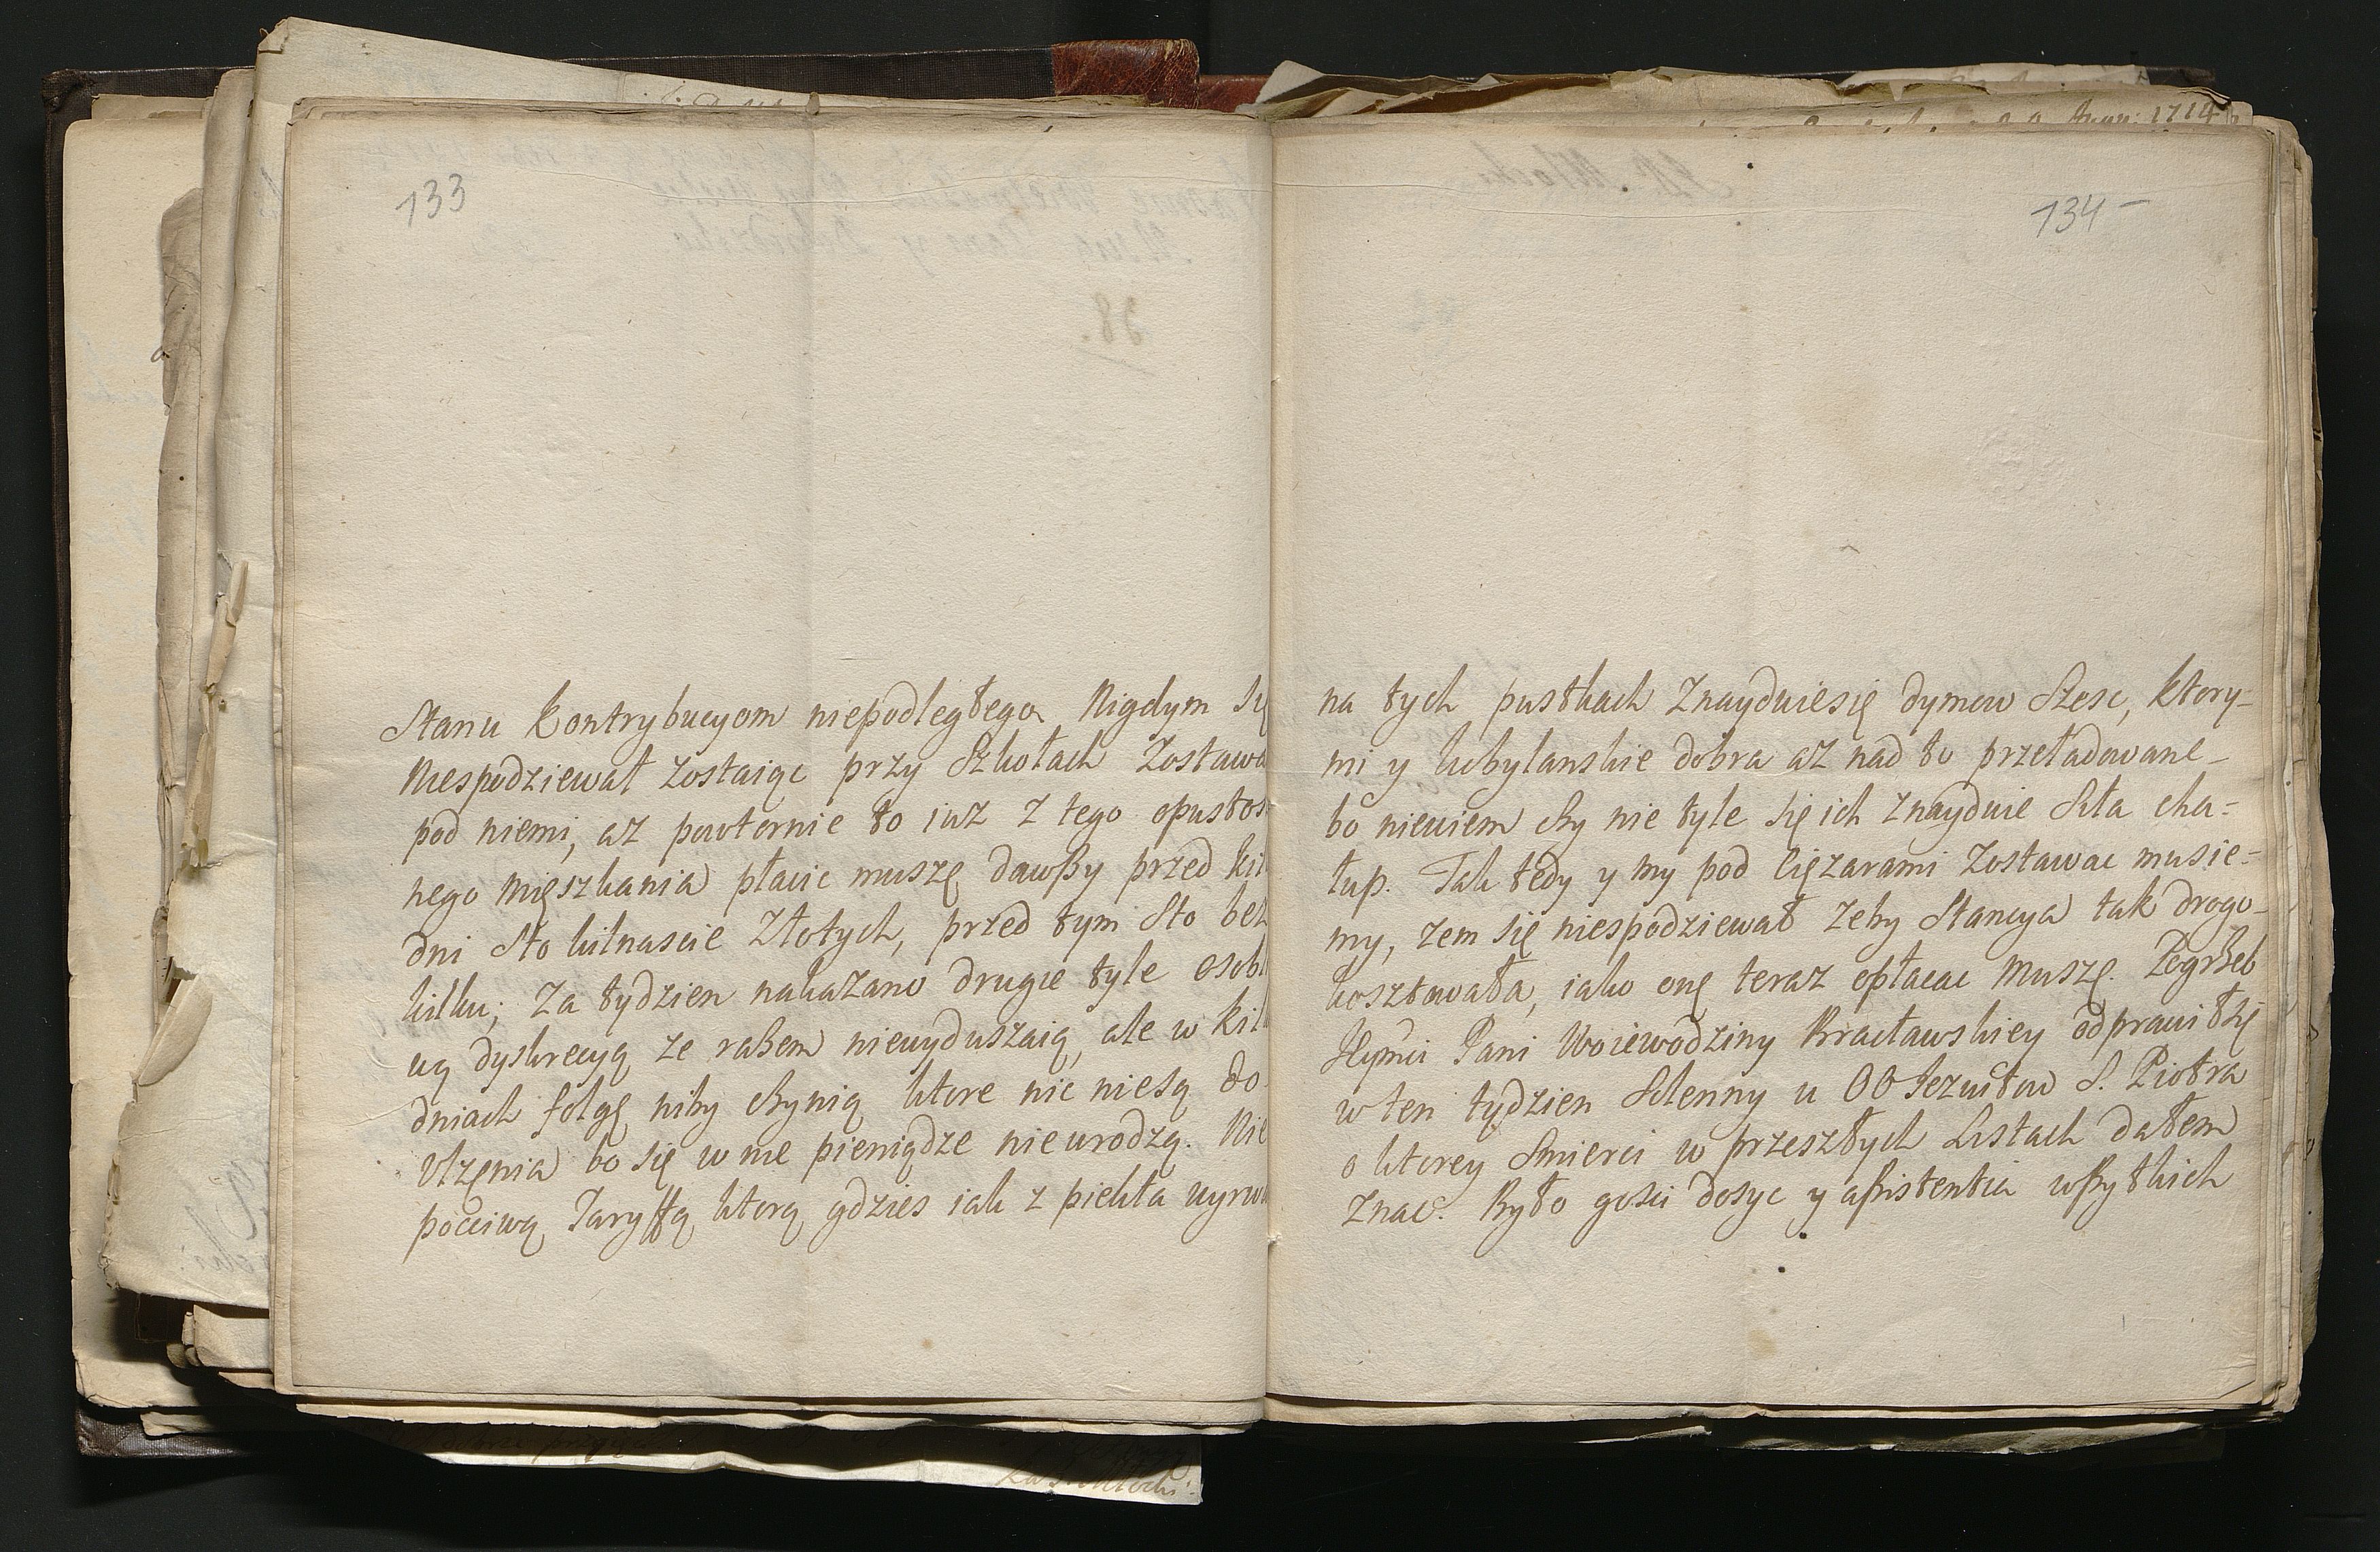 133
Stanu Kontrybucyom niepodległego Nigdym się
Niespodziewał zostaiąc przy Szkołach Zostawa
pod niemi, az powtornie to iuz z tego opustos
nego Mięszkania płacic muszę dawszy przed kil
dni Sto kilnascie Złotych, przed tym Sto bez
kilku; Za tydzien nakazano drugie tyle osobl
wą dyskrecyą ze razem niewyduszaią, ale w kil
dniach folgę niby czynią ktore nic niesą do
Vlzęnia bo się w nie pieniądze nieurodzą. Nie
pocciwą Taryffą ktorą gdzies iak z piekła wyrw
Anno: 1714
134
na tych pustkach Znayduiesię dymow Szesc, ktory-
mi y kobylanskie dobra az nad to przeładowane
bo niewiem czy nie tyle się ich znayduie Siła cha-
łup. Tak tedy y my pod Cięzarami Zostawac musie-
my, zem się niespodziewał zeby Stancya tak drogo
kosztowała, iako onę teraz opłacac Muszę. Pogrzeb
Jeymci Pani Woiewodziny Bracławskiey odprawił się
w ten tydzien Solenny u OO Jezuitow S. Piotra
o ktorey Smierci w przeszłych Listach dałem
Znac. Było gosci dosyc y assistentia wszytkich